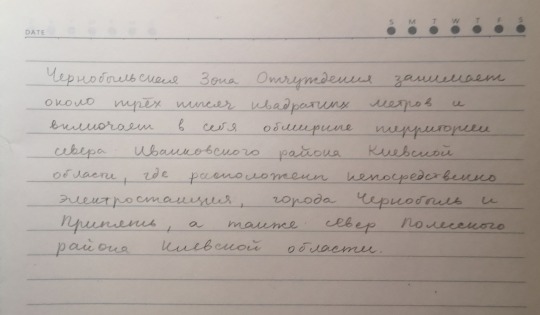 DATE S M T W T F S
Чернобыльская Зона Отчуждения занимает
около трёх тысяч квадратных метров и
включает в себя обширные территории
севера Иванковского района Киевской
области, где расположены непосредственно
электростанция, города Чернобыль и
Припять, а также север Полесского
района Киевской области.